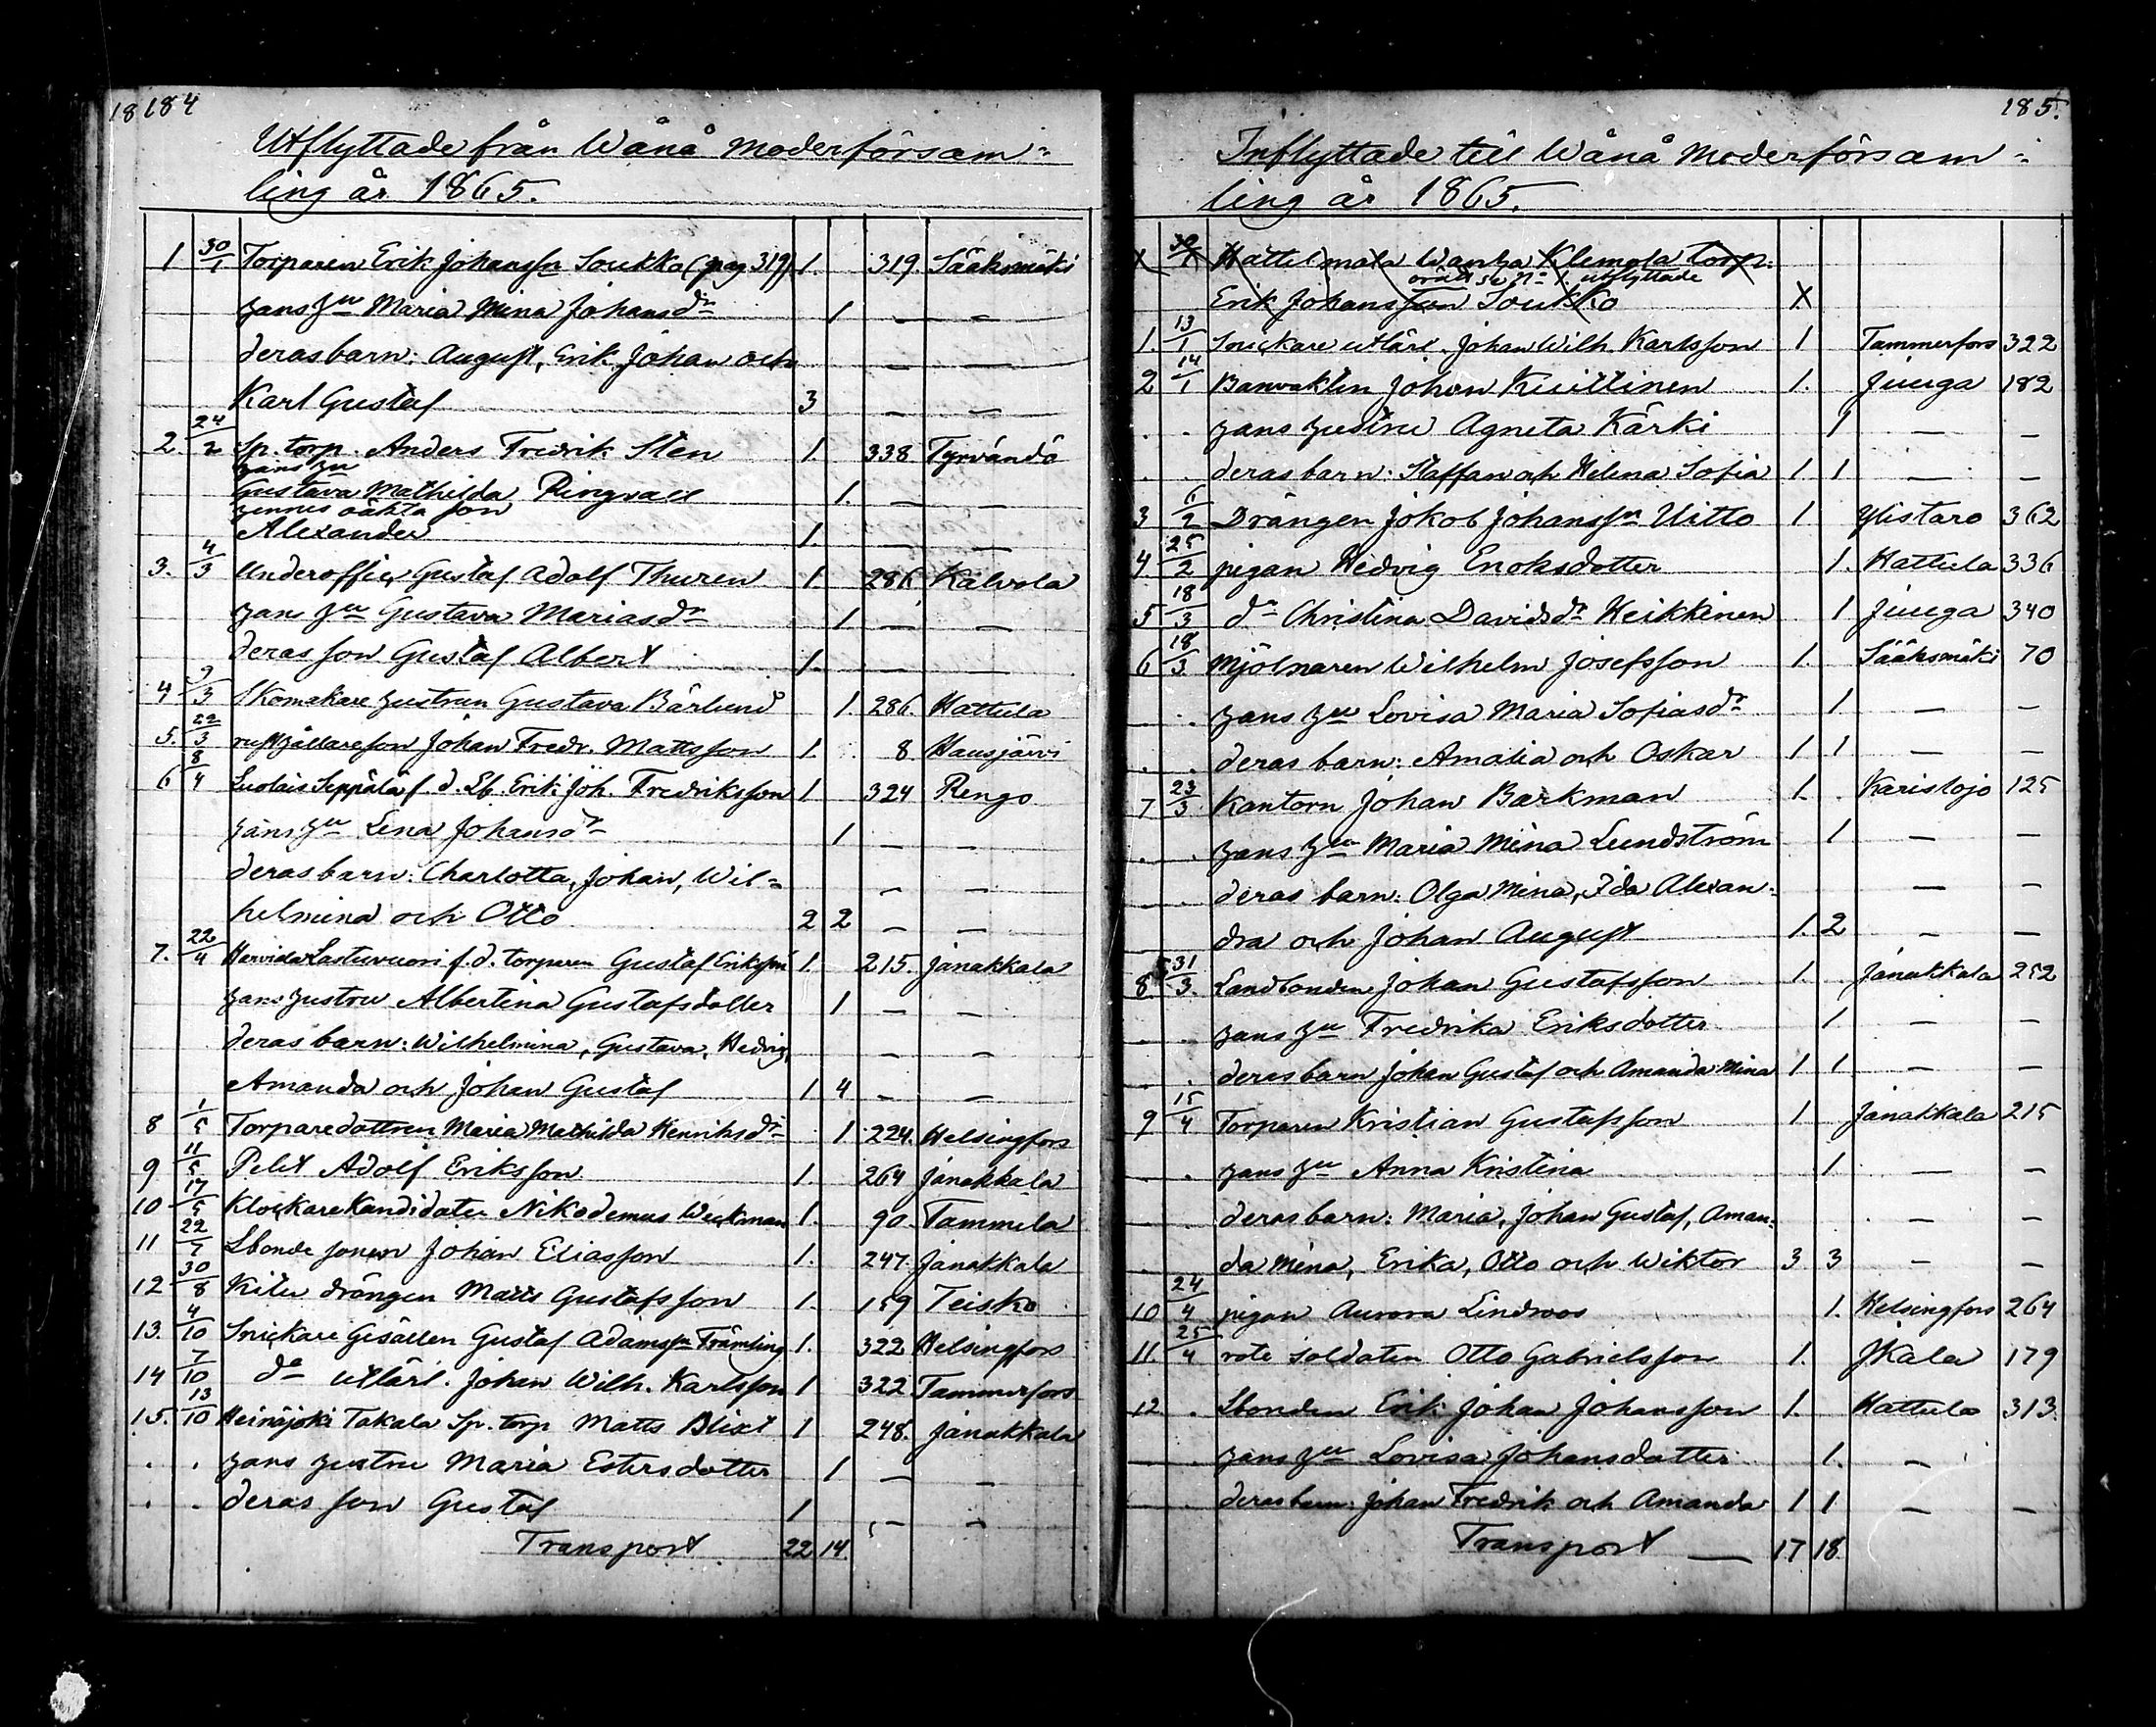 18 184
Utflyttade från Wånå moderförsam=
ling år 1865.
1 30/1 Torparen Erik Johanssn Soukko (pag 319) 1. 319. Sääksmäki
hans hu Maria Mina Johansdr 1 — —
deras barn: August, Erik Johan och — —
Karl Gustaf 3 — —
2 24/2 Sp. torp. Anders Fredrik Sten 1. 338 Tyrvändö
hans hu
Gustava Mathilda Ringvall 1. — —
hennes oäkta son
Alexander 1. — —
3. 4/3 Underoffic Gustaf Adolf Thuren 1. 286. Kalvola
han hu Gustava Mariasdr 1. — —
deras son Gustaf Albert 1. — —
4 9/3 Skomakare hustrun Gustava Bärlund 1. 286. Hattula
5. 22/3 rusthållareson Johan Fredr. Mattsson 1. 8. Hausjärvi
6 8/4 Luolais Seppälä f. d. Lb. Erik Joh. Fredriksson 1 324 Rengo
hans hu Lena Johansdr 1 — —
deras barn: Charlotta, Johan, Wil= — —
helmina och Otto 2 2 — —
7. 22/4 Harviala Lastuvuori f. d. torparen Gustaf Erikssn 1. 215. Janakkala
hans hustru Albertina Gustafsdotter 1 — —
deras barn: Wilhelmina, Gustava, Hedvig, — —
Amanda och Johan Gustaf 1 4 — —
8 1/5 Torparedottren Maria Mathilda Henriksdr 1 224. Helsingfors
9 11/5 Pelit Adolf Eriksson 1. 264 Janakkala
10 17/5 Klockare Kandidaten Nikodemus Weckman 1. 90. Tammela
11 22/7 Lbonde sonen Johan Eliasson 1. 247. Janakkala
12 30/8 Kilu drängen Matts Gustafsson 1. 159 Teisko
13. 4/10 Snickare Gesällen Gustaf Adamssn Främling 1. 322 Helsingfors
14 7/10 do utlärl. Johan Wilh. Karlsson 1 322 Tammerfors
15. 13/10 Heinäjoki Takala Sp. torp Matts Blixt 1 248. Janakkala
. . hans hustru Maria Estersdotter 1 — —
. . deras son Gustaf 1 — —
Transport 22 14.
185.
Inflyttade till Wånå Moderförsam=
ling år 1865.
X 30/1 Hattelmala Wanha Klemola torp.
utflyttade
Erik Johansson Soukko X
1. 13/1 Snickare utlärl. Johan Wilh. Karlsson 1 Tammerfors 322
2 14/1 Banvakten Johan Kuittinen 1. Juuga 182
. . hans hustru Agneta Kärki 1 — —
. . deras barn: Staffan och Helena Sofia 1 1 — —
3 6/2 Drängen Jakob Johanssn Uitto 1 Ylistaro 362
4. 25/2 pigan Hedvig Enoksdotter 1. Hattula 336
5 18/3 do Christina Davidsdr Heikkinen 1 Juuga 340
6 18/3 Mjölnaren Wilhelm Josefsson 1. Sääksmäki 70
. . hans hu Lovisa Maria Sofiasdr 1. — —
. . deras barn: Amalia och Oskar 1 1 — —
7 23/3 Kantorn Johan Barkman 1. Karislojo 125
. . hans hu Maria Mina Lundström 1 — —
deras barn: Olga Mina, Ida Alexan= — —
dra och Johan August 1. 2 — —
8 31/3. Landbonden Johan Gustafsson 1. Janakkala 252
. . hans hu Fredrika Eriksdotter 1 — —
. . deras barn Johan Gustaf och Amanda Mina 1 1 — —
9 15/4 Torparen Kristian Gustafsson 1 Janakkala 215
. hans hu Anna Kristina 1 — —
deras barn: Maria, Johan Gustaf, Aman= — —
da Mina, Erika, Otto och Wiktor 3 3 — —
10 24/4 pigan Aurora Lindroos 1. Helsingfors 264
11. 25/4 rote soldaten Otto Gabrielsson 1. Jkala 179
12 . Lbonden Erik Johan Johansson 1. Hattula 313.
. hans hu Lovisa Johansdotter 1. —
deras barn: Johan Fredrik och Amanda 1 1 — —
Transport — 17 18